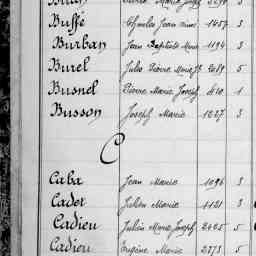 Buffe Charles Jean Marie 1457 3
Burban Jean Baptiste Marie 1194 3
Burel Jules Pierre Marie 2089 5
Busnel Pierre Marie Joseph 410 1
Busson Joseph Marie 1027 3
C
Caba Jean Marie 1096 3
Cadet Julien Marie 1131 3
Cadieu Julien Marie Joseph 2005 5
Cadieu Eugène Marie 2373 5